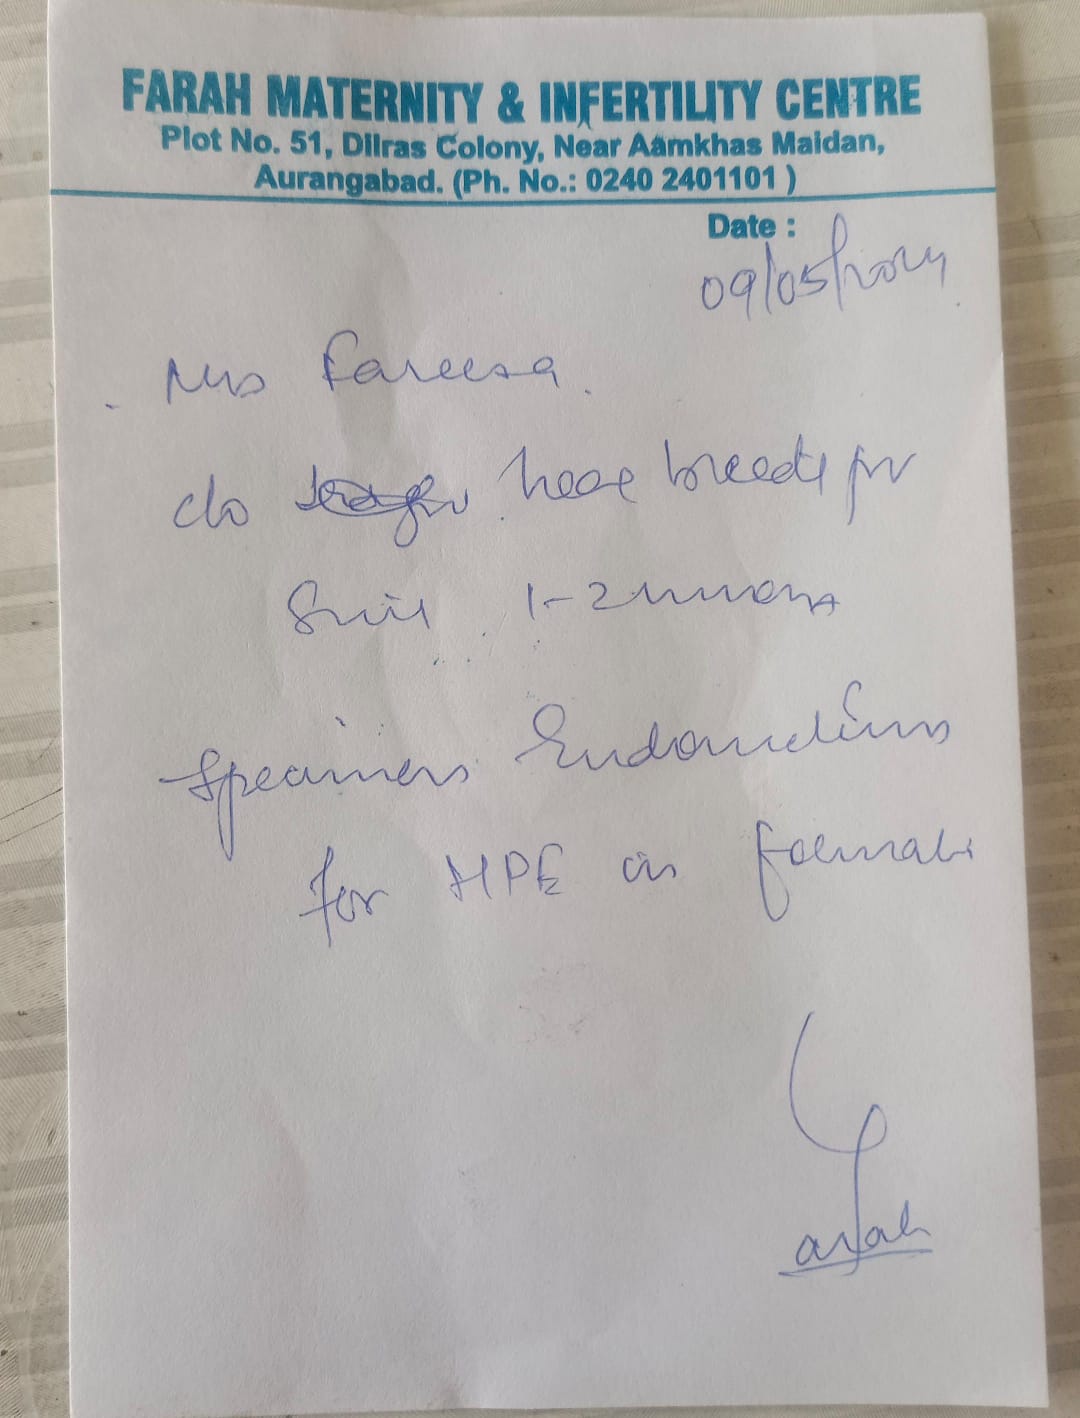 FARAH MATERNITY & INFERTILITY CENTRE
Plot No. 51, Dilras Colony, Near Aamkhas Maidan,
Aurangabad. (Ph. No.: 0240 2401101 )
Date :
09/05/2024
Mrs Fareesa.
c/o bleeds pv
1-2
Specimens Endometrium
for HPE in formalin